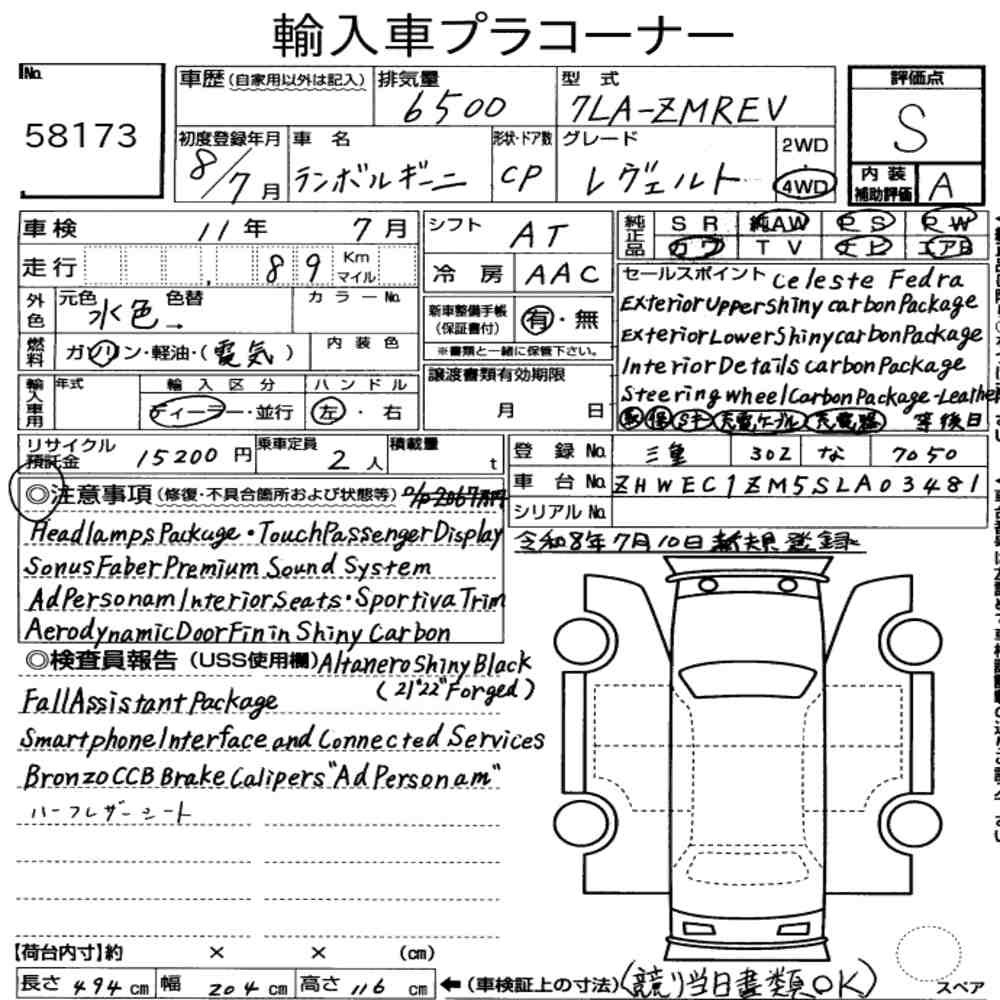 輸入車プラコーナー
No.
58173
車歴(自家用以外は記入)
排気量
6500
型 式
7LA-ZMREV
評価点
S
内装補助評価
A
初度登録年月
8/7月
車 名
ランボルギーニ
形状・ドア数
CP
グレード
レヴェルト
2WD
4WD
車検 11年 7月
走行 89 Km マイル
外色 元色 水色 色替 カラーNo.
燃料 ガソリン・軽油・(電気) 内装色
輸入車用 年式 輸入区分 ハンドル
ディーラー・並行 左・右
シフト AT
冷房 AAC
新車整備手帳(保証書付) 有・無
※書類と一緒に保管下さい。
譲渡書類有効期限
月 日
純正品 SR 純AW PS PW
カワ TV ナビ エアB
セールスポイント Celeste Fedra
Exterior Upper Shiny carbon Package
Exterior Lower Shiny carbon Package
Interior Details carbon Package
Steering wheel Carbon Package-Leather
取 保 Sキー 充電ケーブル 充電器 等後日
リサイクル預託金 15200円 乗車定員 2人 積載量 t
登録No. 三重 302 な 7050
車台No. ZHWEC1ZM5SLA03481
シリアルNo.
令和8年7月10日新規登録
◎注意事項(修復・不具合箇所および状態等) O/P 2067万円
Headlamps Package・Touch Passenger Display
Sonus Faber Premium Sound System
Ad Personam Interior Seats・Sportiva Trim
Aerodynamic Door Fin in Shiny Carbon
◎検査員報告(USS使用欄) Altanero Shiny Black
(21"22"Forged)
Fall Assistant Package
Smartphone Interface and Connected Services
Bronzo CCB Brake Calipers "Ad Personam"
ハーフレザーシート
【荷台内寸】約 × × (cm)
長さ 494cm 幅 204cm 高さ 116cm ←(車検証上の寸法)
(競り当日書類OK)
スペア